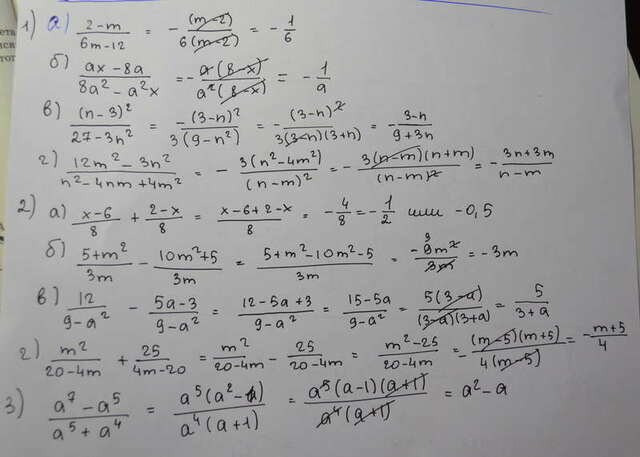 1) а) (2-m)/(6m-12) = -(m-2)/(6(m-2)) = -1/6
б) (ax-8a)/(8a²-a²x) = -(a(8-x))/(a²(8-x)) = -1/a
в) (n-3)²/(27-3n²) = -(3-n)²/(3(9-n²)) = -(3-n)²/(3(3-n)(3+n)) = -(3-n)/(9+3n)
г) (12m²-3n²)/(n²-4nm+4m²) = -3(n²-4m²)/(n-m)² = -3(n-m)(n+m)/(n-m)² = -(3n+3m)/(n-m)
2) а) (x-6)/8 + (2-x)/8 = (x-6+2-x)/8 = -4/8 = -1/2 или -0,5
б) (5+m²)/3m - (10m²+5)/3m = (5+m²-10m²-5)/3m = -9m²/3m = -3m
в) 12/(9-a²) - (5a-3)/(9-a²) = (12-5a+3)/(9-a²) = (15-5a)/(9-a²) = 5(3-a)/((3-a)(3+a)) = 5/(3+a)
г) m²/(20-4m) + 25/(4m-20) = m²/(20-4m) - 25/(20-4m) = (m²-25)/(20-4m) = (m-5)(m+5)/(4(m-5)) = -(m+5)/4
3) (a⁷-a⁵)/(a⁵+a⁴) = a⁵(a²-1)/(a⁴(a+1)) = a⁵(a-1)(a+1)/(a⁴(a+1)) = a²-a